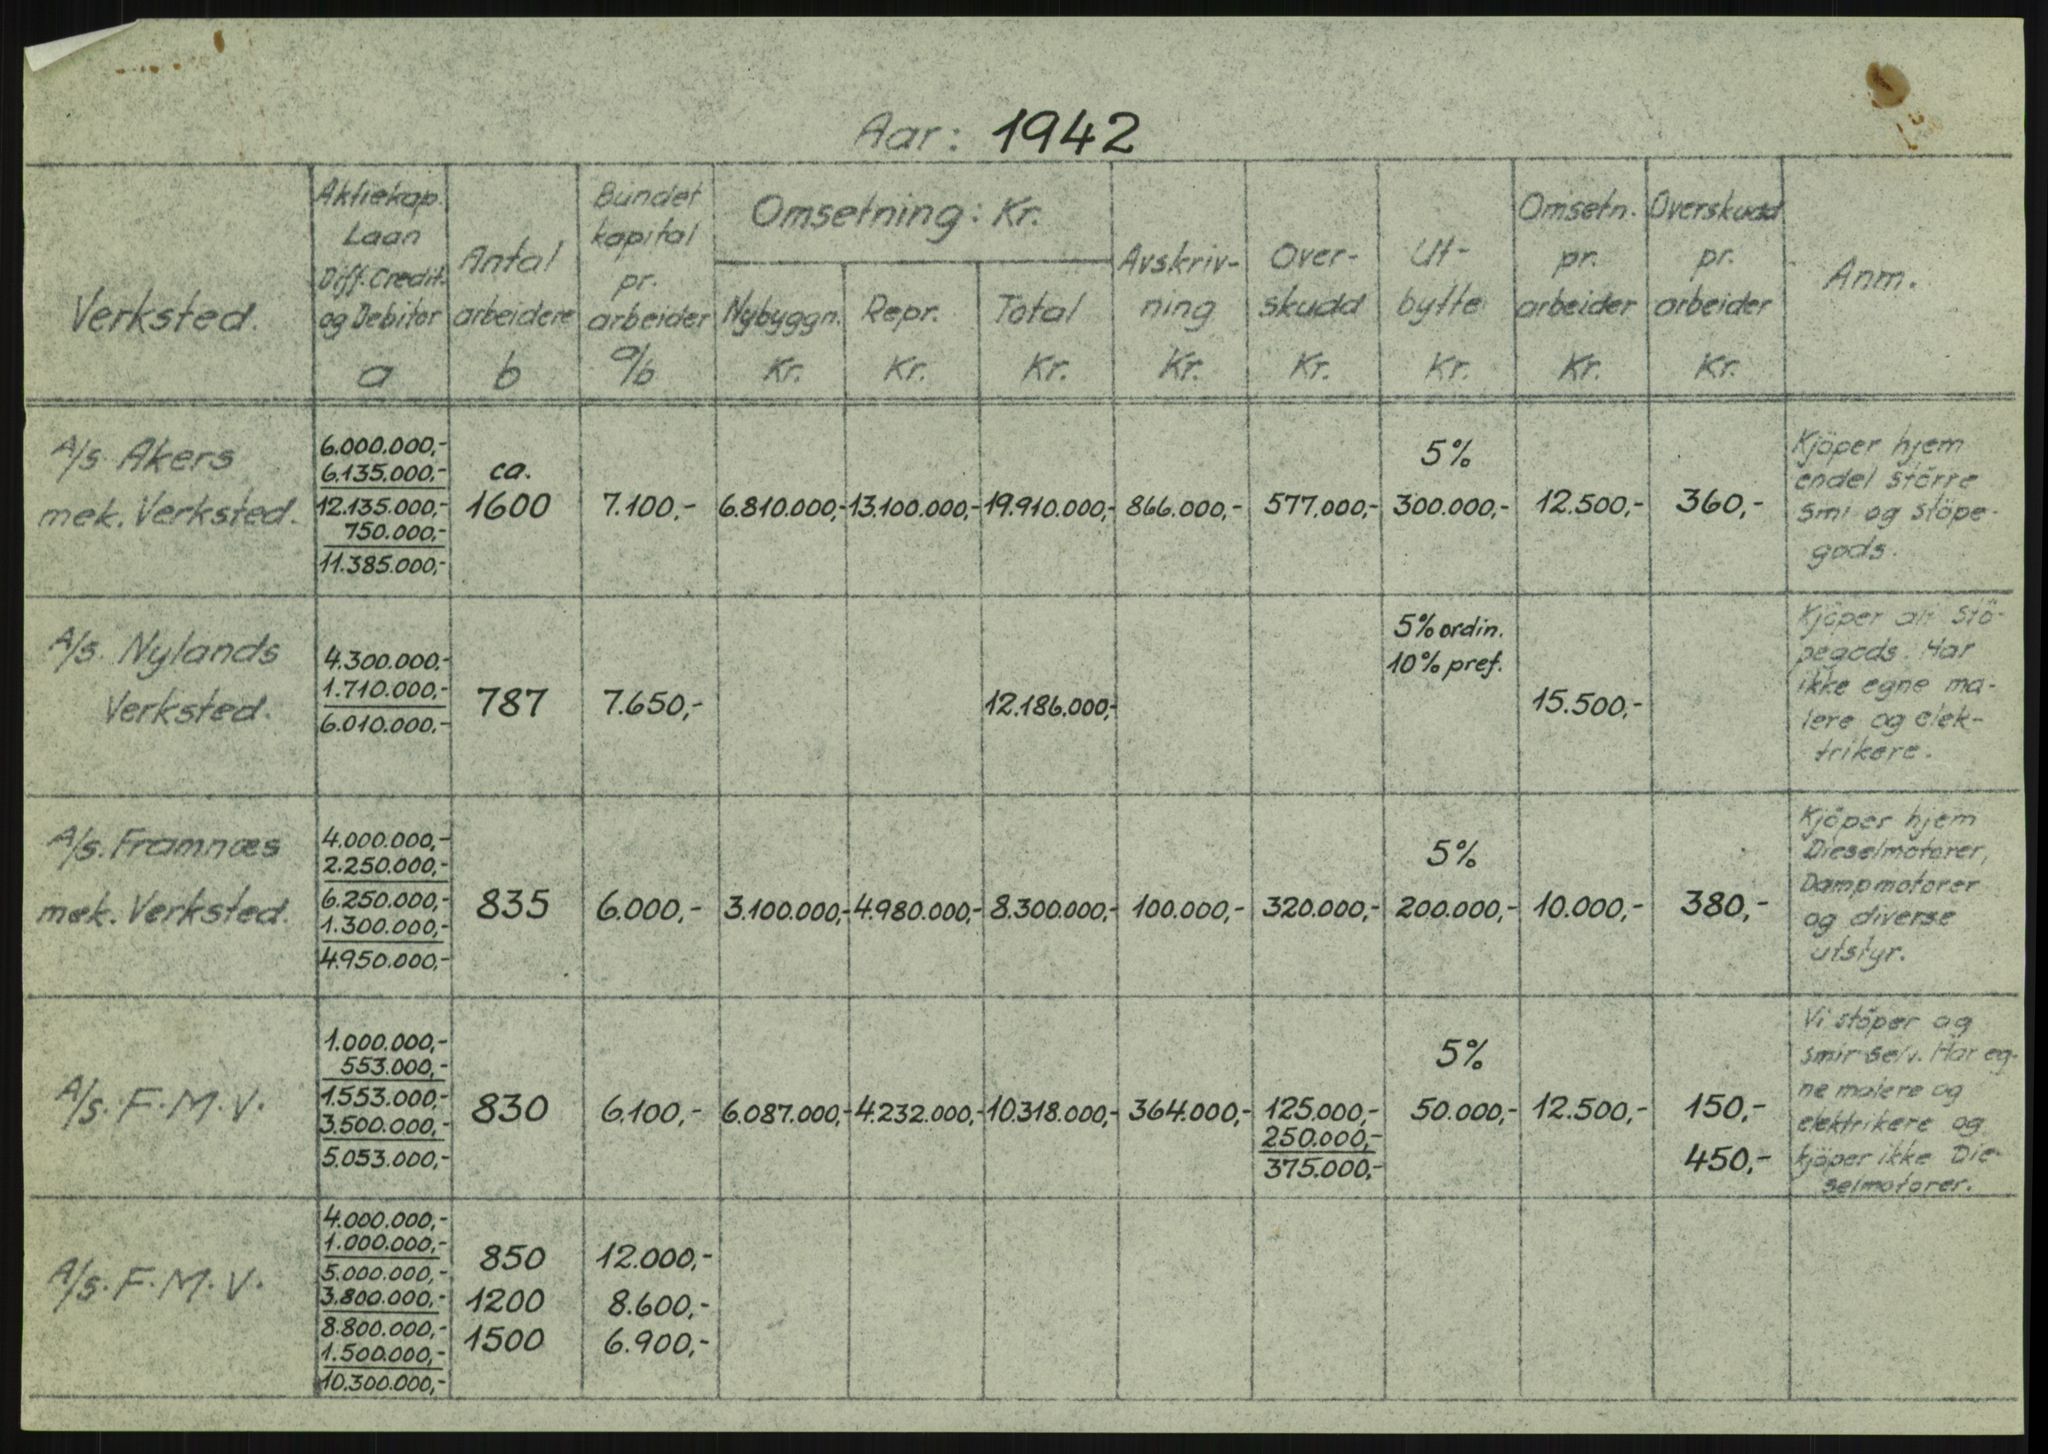 Aar: 1942
Verksted.
Aktiekap.
Laan
Diff. Credit.
og Debitor
a
Antal
arbeidere
b
Bundet
kapital
pr.
arbeider
a/b
Omsetning: Kr.
Nybyggn.
Kr.
Repr.
Kr.
Total
Kr.
Avskriv-
ning
Kr.
Over-
skudd
Kr.
Ut-
bytte
Kr.
Omsetn.
pr.
arbeider
Kr.
Overskudd
pr.
arbeider
Kr.
Anm.
A/s. Akers
mek. Verksted.
6.000.000,-
6.135.000,-
12.135.000,-
750.000,-
11.385.000,-
ca.
1600
7.100,-
6.810.000,-
13.100.000,-
19.910.000,-
866.000,-
577.000,-
5%
300.000,-
12.500,-
360,-
Kjöper hjem
endel större
smi- og stöpe-
gods.
A/s. Nylands
Verksted.
4.300.000,-
1.710.000,-
6.010.000,-
787
7.650,-
12.186.000,-
5% ordin.
10% pref.
15.500,-
Kjöper alt stö-
pegods. Har
ikke egne ma-
lere og elek-
trikere.
A/s. Framnæs
mek. Verksted.
4.000.000,-
2.250.000,-
6.250.000,-
1.300.000,-
4.950.000,-
835
6.000,-
3.100.000,-
4.980.000,-
8.300.000,-
100.000,-
320.000,-
5%
200.000,-
10.000,-
380,-
Kjöper hjem
Dieselmotorer,
Dampmotorer
og diverse
utstyr.
A/s. F. M. V.
1.000.000,-
553.000,-
1.553.000,-
3.500.000,-
5.053.000,-
830
6.100,-
6.087.000,-
4.232.000,-
10.318.000,-
364.000,-
125.000,-
250.000,-
375.000,-
5%
50.000,-
12.500,-
150,-
450,-
Vi stöper og
smir selv. Har eg-
ne malere og
elektrikere og
kjöper ikke Die-
selmotorer.
A/s. F. M. V.
4.000.000,-
1.000.000,-
5.000.000,-
3.800.000,-
8.800.000,-
1.500.000,-
10.300.000,-
850
1200
1500
12.000,-
8.600,-
6.900,-